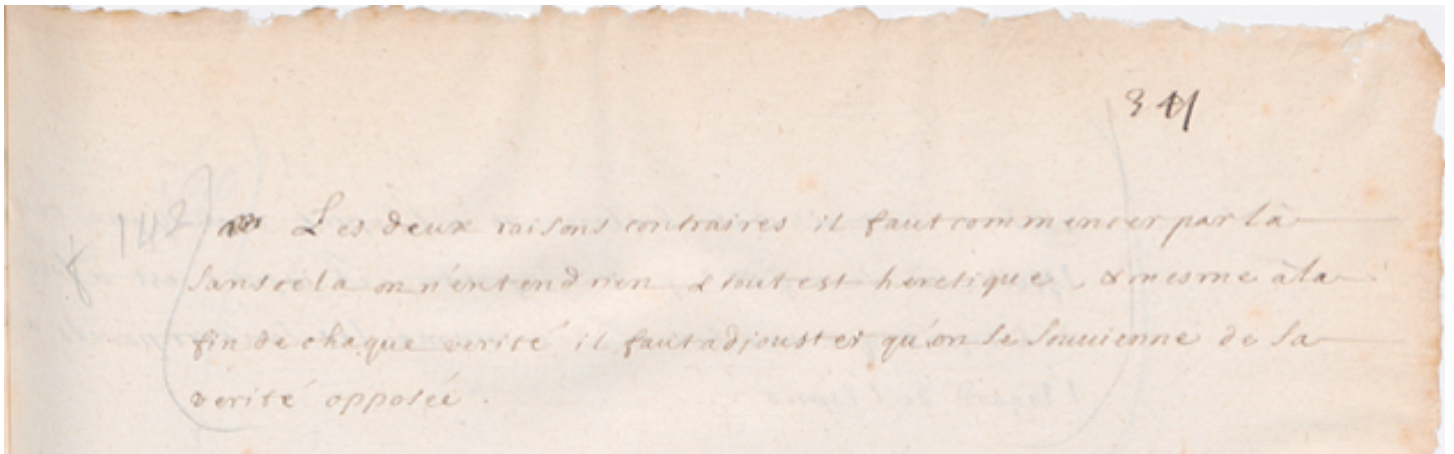 341
142 Les deux raisons contraires il faut commencer par là
sans cela on n'entend rien & tout est heretique, & mesme à la
fin de chaque verité il faut adjouster qu'on se souuienne de la
verité opposée.